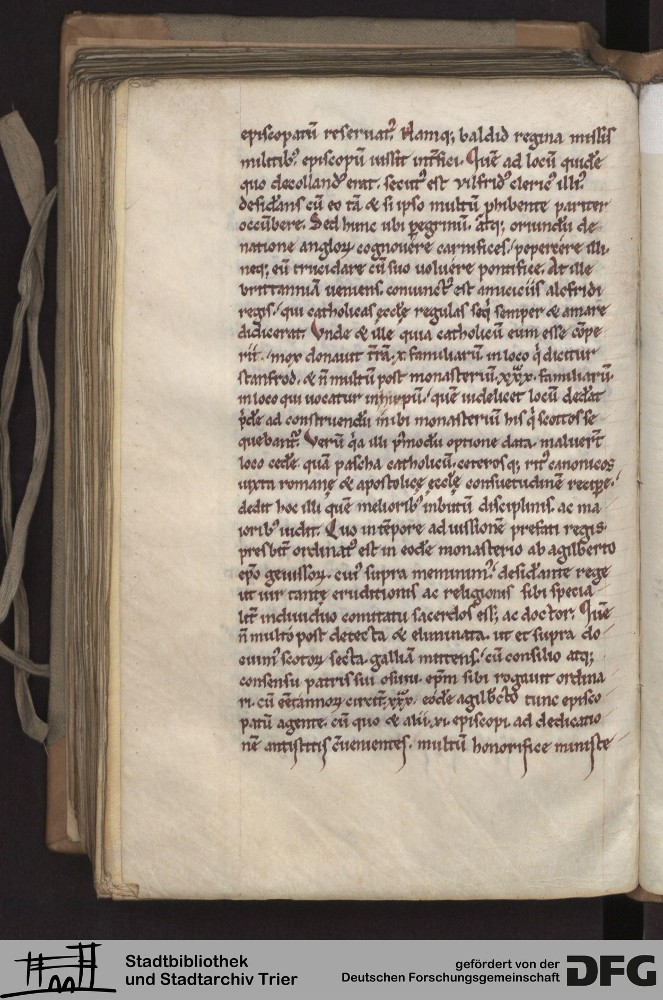 episcopatū reseruat᷑. Namq; baldid regina missis
militib; episcopū iussit int̄fici. Quē ad locū quidē
quo decolland᷒ erat. secut᷒ est vilfrid᷒ cleric᷒ illi᷒.
desid̄ans cū eo tā & si ipso multū phibente pariter
occūbere. Sed hunc ubi pegrinū. atq; oriundū de
natione angloꝝ cognouere carnifices. pepercere illi.
neq; eū trucidare cū suo uoluere pontifice. At ille
brittanniā ueniens. coniunct᷒ est amiciciis alcfridi
regis. qui catholicas ęccłę regulas seq̇ semper & amare
didicerat. Unde & ille quia catholicū eum esse cōpe
rit. mox donauit t̄rā .x. familiarū in loco q̇ dicitur
stanford. & n̄ multū post monasteriū .xxx. familiarū.
in loco qui uocatur inhripū. quē uidelicet locū ded̄at
p̄de ad construendū inibi monasteriū his q̇ scottos se
quebant᷑. Verū q̇a illi p̄modū optione data. maluert̄
loco ced̄e quā pascha catholicū. ceterosq; rit᷒ canonicos
iuxta romanę & apostolicę ęccłę consuetudinē recipe.
dedit hoc illi quē meliorib; inbutū disciplinis. ac ma
iorib; uidit. Quo in tēpore ad iussionē prefati regis
presbit̄ ordinat᷒ est in eodē monasterio ab agilberto
ep̄o geuissoꝝ. cui᷒ supra meminim᷒. desid̄ante rege
ut uir tantę eruditionis ac religionis sibi specia
lit̄ indiuiduo comitatu sacerdos ess; ac doctor. Quē
n̄ multo post detecta & eliminata. ut et supra do
cuim᷒ scotoꝝ secta. galliā mittens. cū consilio atq;
consensu patris sui osuiu. ep̄m sibi rogauit ordina
ri. cū eēt annoꝝ circit̄ .xxx. eodē agilb̄cto tunc episco
patū agente. cū quo & alii .xi. episcopi ad dedicatio
nē antistitis c̄uenientes. multū honorifice ministe
Stadtbibliothek
und Stadtarchiv Trier
gefördert von der
Deutschen Forschungsgemeinschaft
DFG